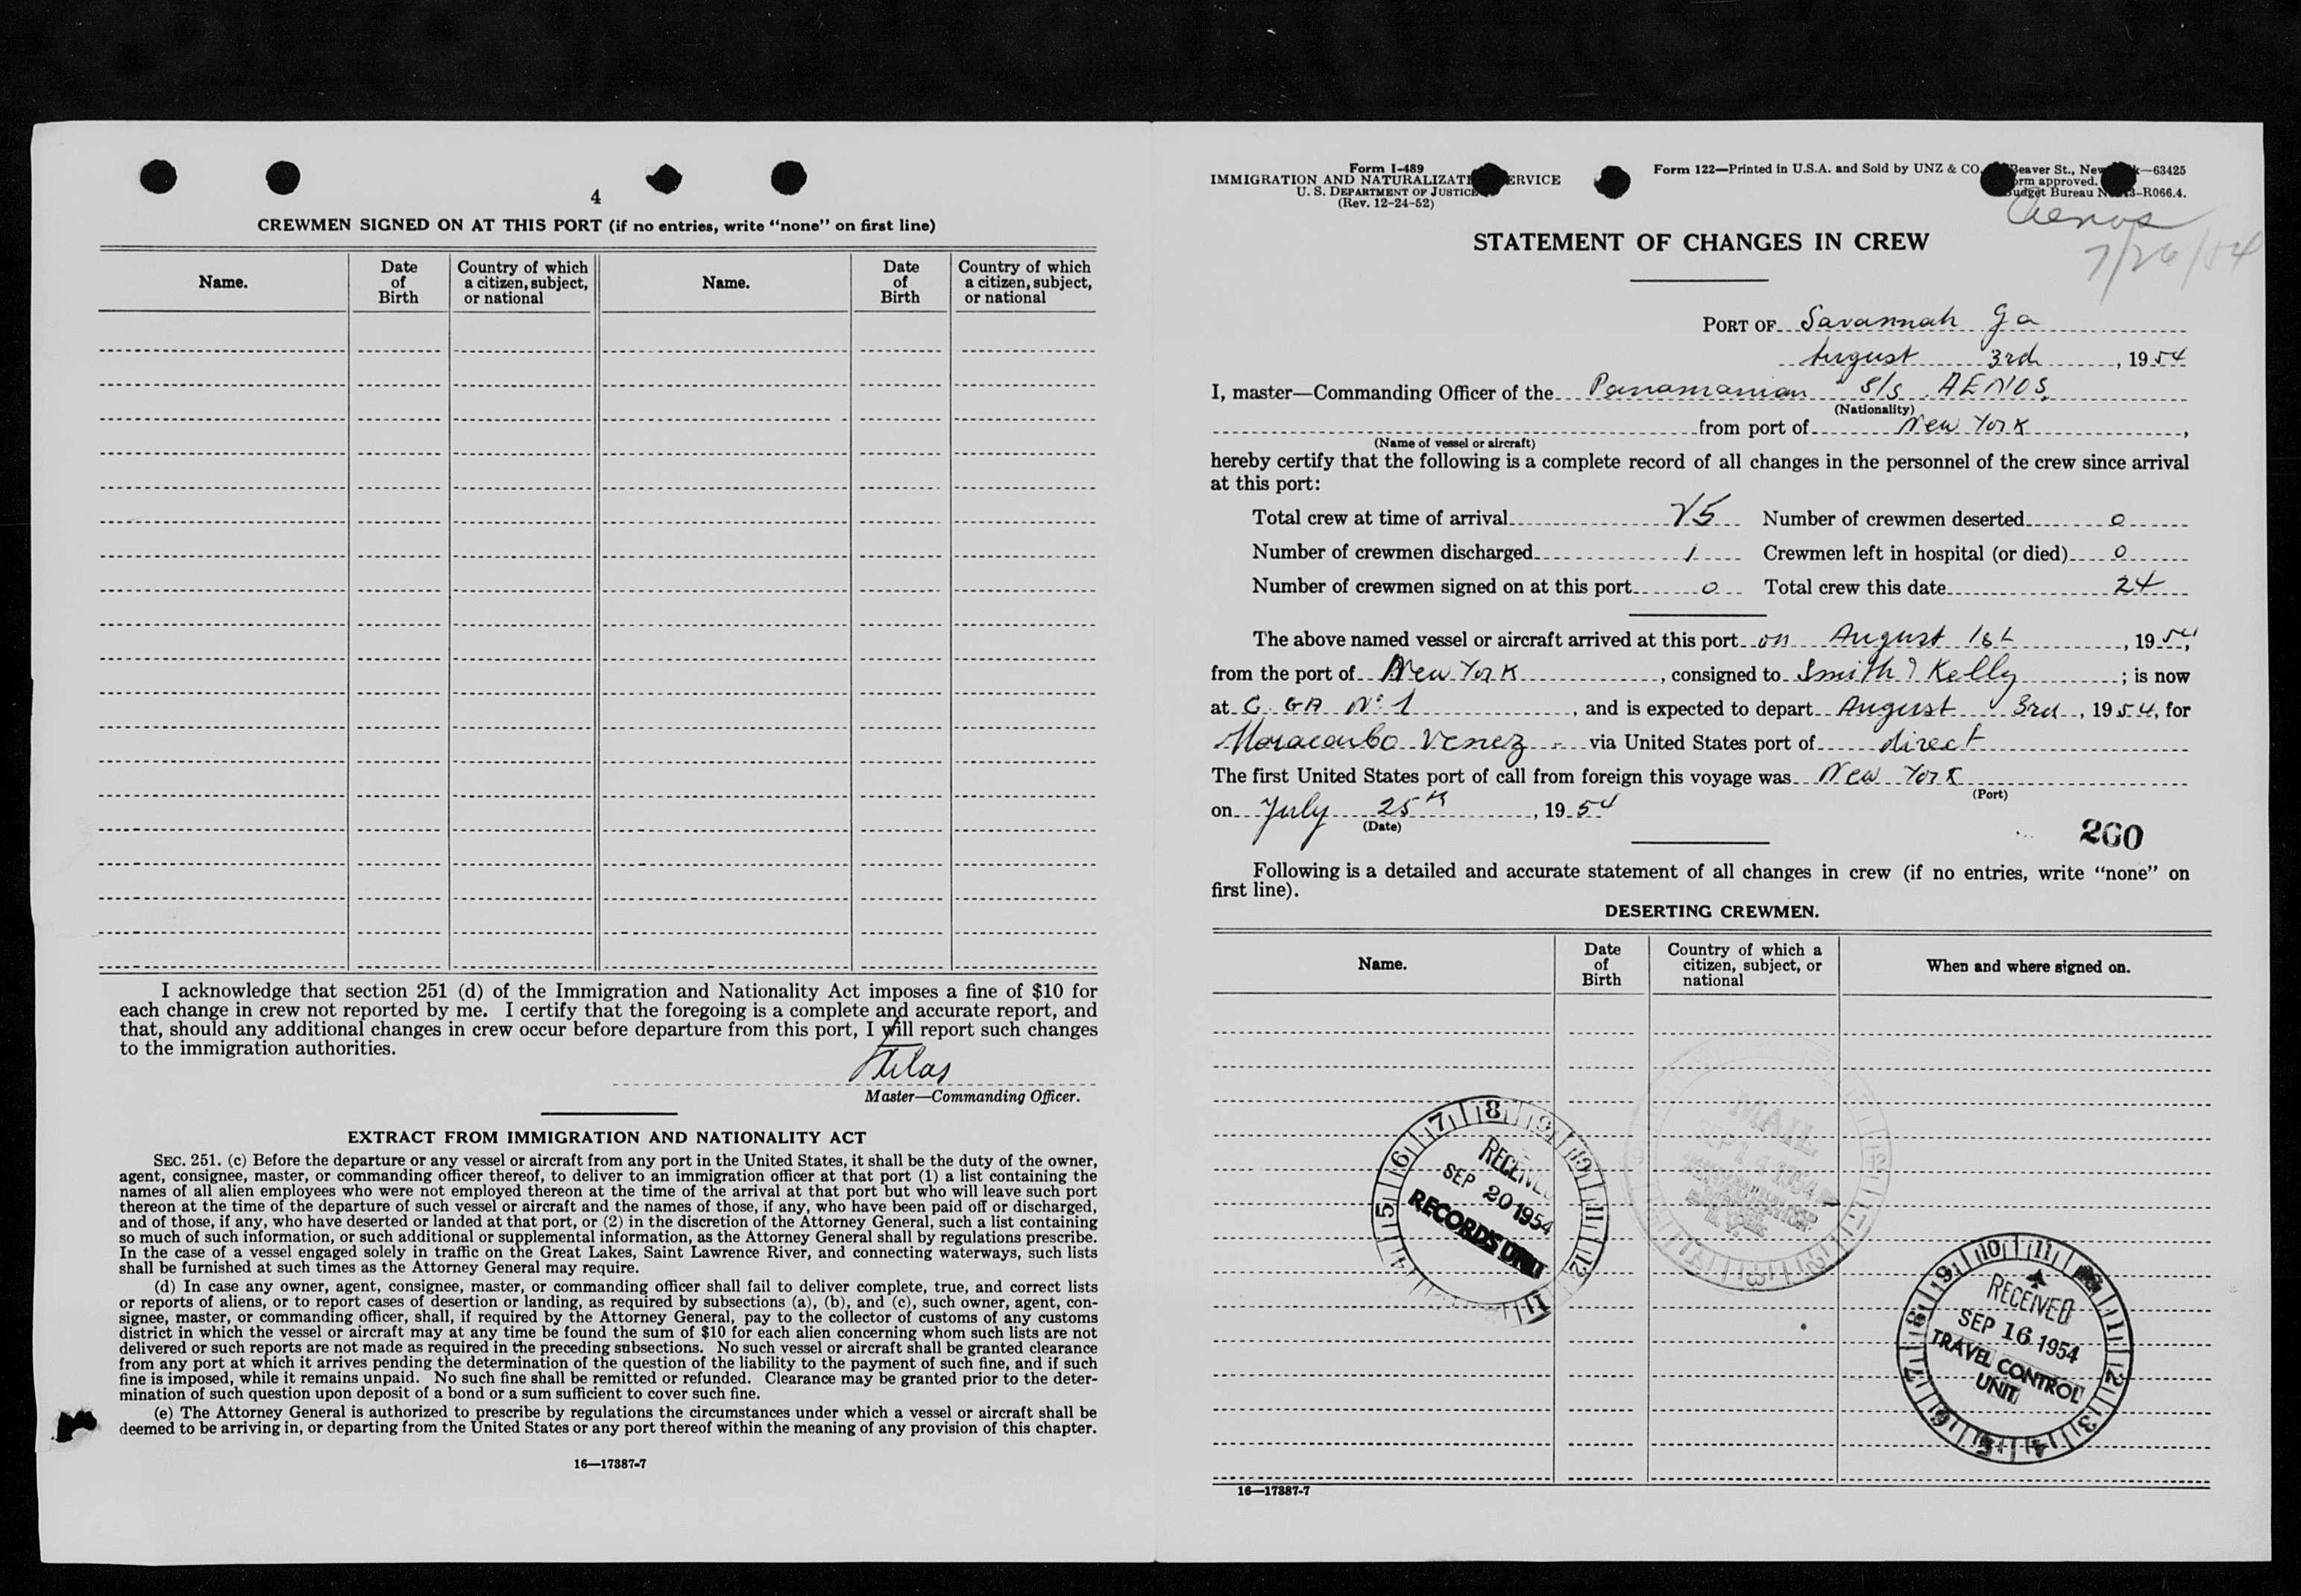 4
CREWMEN SIGNED ON AT THIS PORT (if no entries, write “none” on first line)
Name.
Date of Birth
Country of which a citizen, subject, or national
Name.
Date of Birth
Country of which a citizen, subject, or national
I acknowledge that section 251 (d) of the Immigration and Nationality Act imposes a fine of $10 for
each change in crew not reported by me. I certify that the foregoing is a complete and accurate report, and
that, should any additional changes in crew occur before departure from this port, I will report such changes
to the immigration authorities.
Master—Commanding Officer.
EXTRACT FROM IMMIGRATION AND NATIONALITY ACT
SEC. 251. (c) Before the departure or any vessel or aircraft from any port in the United States, it shall be the duty of the owner,
agent, consignee, master, or commanding officer thereof, to deliver to an immigration officer at that port (1) a list containing the
names of all alien employees who were not employed thereon at the time of the arrival at that port but who will leave such port
thereon at the time of the departure of such vessel or aircraft and the names of those, if any, who have been paid off or discharged,
and of those, if any, who have deserted or landed at that port, or (2) in the discretion of the Attorney General, such a list containing
so much of such information, or such additional or supplemental information, as the Attorney General shall by regulations prescribe.
In the case of a vessel engaged solely in traffic on the Great Lakes, Saint Lawrence River, and connecting waterways, such lists
shall be furnished at such times as the Attorney General may require.
(d) In case any owner, agent, consignee, master, or commanding officer shall fail to deliver complete, true, and correct lists
or reports of aliens, or to report cases of desertion or landing, as required by subsections (a), (b), and (c), such owner, agent, con-
signee, master, or commanding officer, shall, if required by the Attorney General, pay to the collector of customs of any customs
district in which the vessel or aircraft may at any time be found the sum of $10 for each alien concerning whom such lists are not
delivered or such reports are not made as required in the preceding subsections. No such vessel or aircraft shall be granted clearance
from any port at which it arrives pending the determination of the question of the liability to the payment of such fine, and if such
fine is imposed, while it remains unpaid. No such fine shall be remitted or refunded. Clearance may be granted prior to the deter-
mination of such question upon deposit of a bond or a sum sufficient to cover such fine.
(e) The Attorney General is authorized to prescribe by regulations the circumstances under which a vessel or aircraft shall be
deemed to be arriving in, or departing from the United States or any port thereof within the meaning of any provision of this chapter.
16—17387-7
Form I-489
IMMIGRATION AND NATURALIZATI ERVICE
U. S. DEPARTMENT OF JUSTICE
(Rev. 12-24-52)
Form 122—Printed in U.S.A. and Sold by UNZ & CO. Beaver St., New k—63425
orm approved.
Budget Bureau N 3-R066.4.
Aenos
7/26/54
STATEMENT OF CHANGES IN CREW
PORT OF Savannah Ga
August 3rd, 1954
I, master—Commanding Officer of the Panamanian s/s AENOS.
(Nationality)
from port of New York,
(Name of vessel or aircraft)
hereby certify that the following is a complete record of all changes in the personnel of the crew since arrival
at this port:
Total crew at time of arrival 25 Number of crewmen deserted 0
Number of crewmen discharged 1 Crewmen left in hospital (or died) 0
Number of crewmen signed on at this port 0 Total crew this date 24
The above named vessel or aircraft arrived at this port on August 1st, 1954,
from the port of New York, consigned to Smith & Kelly; is now
at C. GA No 1, and is expected to depart August 3rd, 1954, for
Maracaibo Venez via United States port of direct
The first United States port of call from foreign this voyage was New York
(Port)
on July 25th, 1954
(Date)
260
Following is a detailed and accurate statement of all changes in crew (if no entries, write “none” on
first line).
DESERTING CREWMEN.
Name.
Date of Birth
Country of which a citizen, subject, or national
When and where signed on.
RECEIVED
SEP 20 1954
RECORDS UNIT
MAIL
SEP 14 1954
RECEIVED
SEP 16 1954
TRAVEL CONTROL
UNIT
16—17387-7